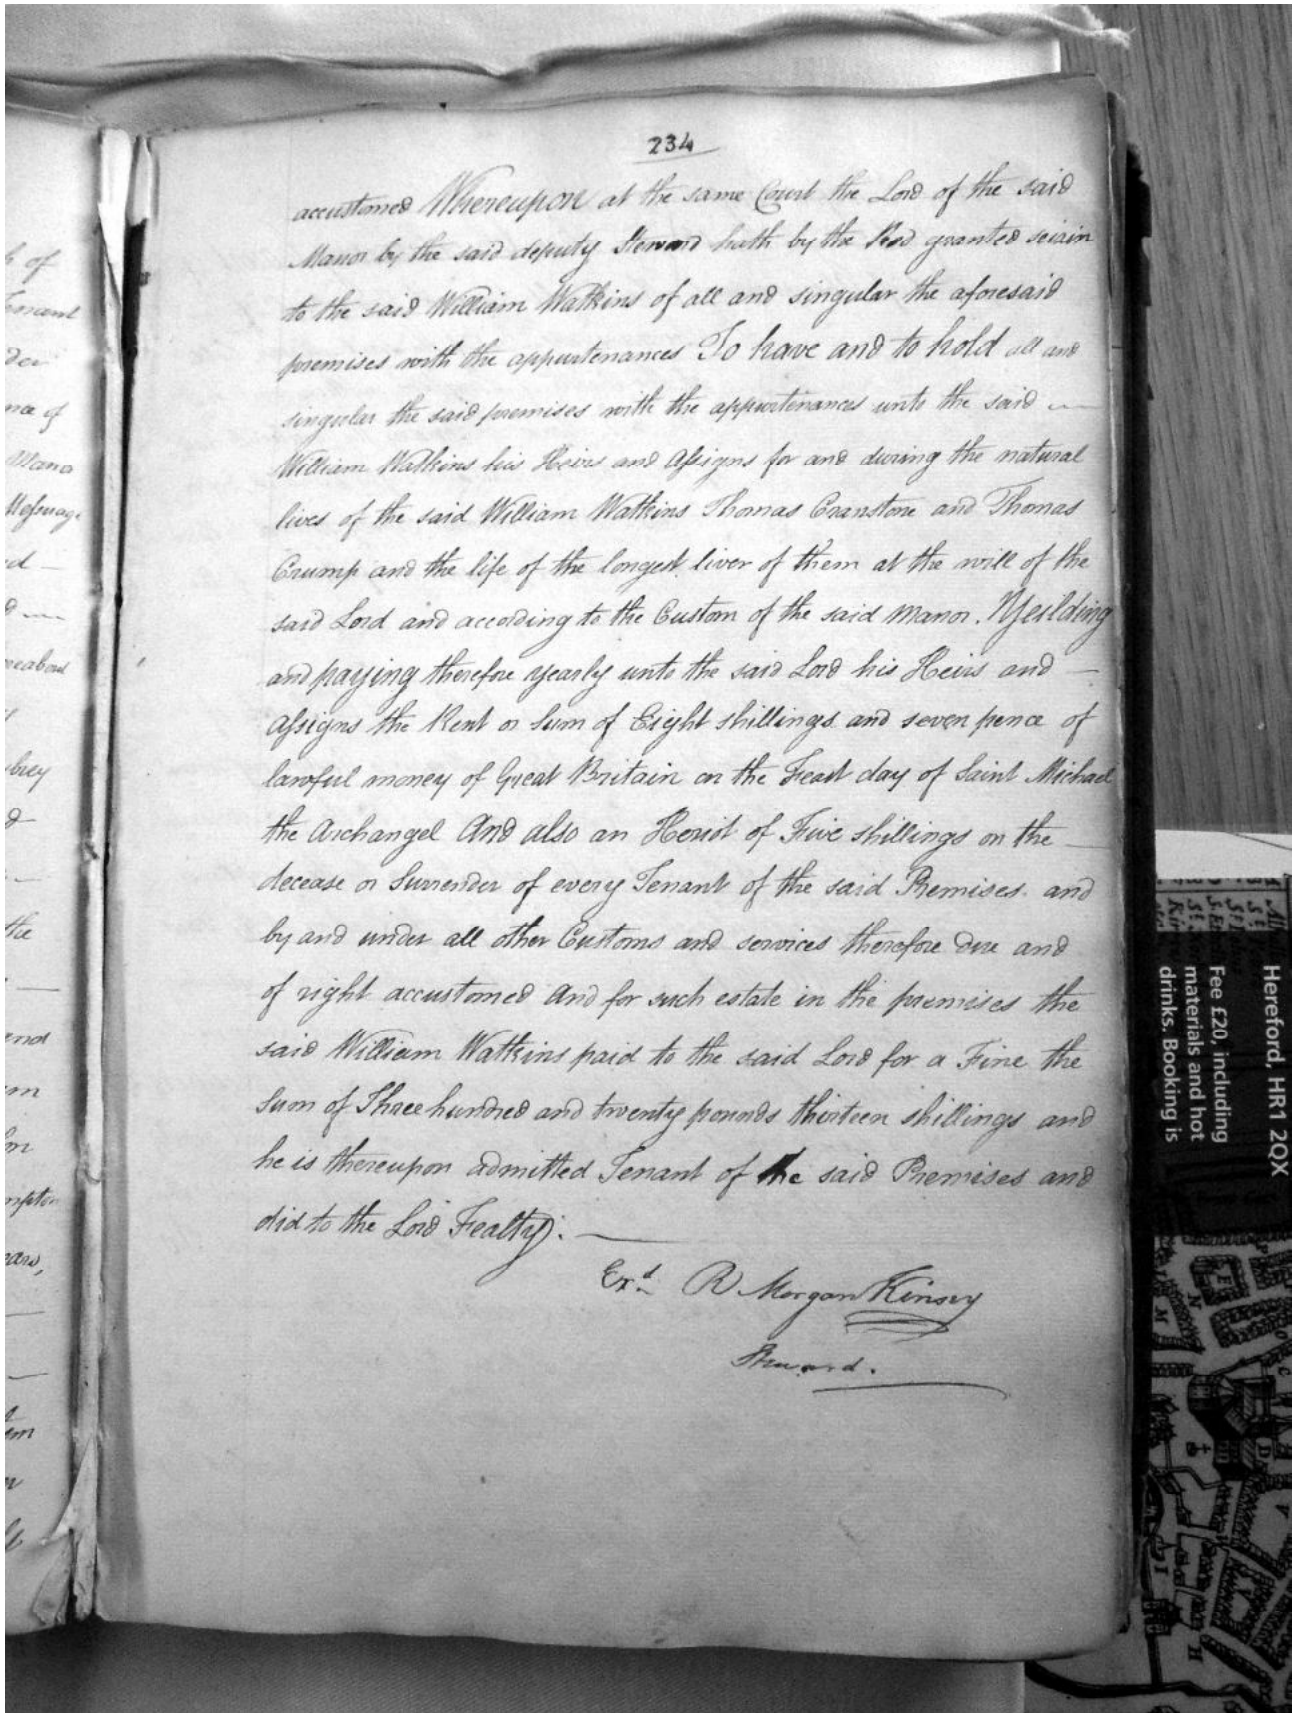 234
accustomed Whereupon at the same Court the Lord of the said
Manor by the said deputy Steward hath by the Rod granted seizin
to the said William Watkins of all and singular the aforesaid
premises with the appurtenances To have and to hold all and
singular the said premises with the appurtenances unto the said
William Watkins his Heirs and Assigns for and during the natural
lives of the said William Watkins Thomas Cranstone and Thomas
Crump and the life of the longest liver of them at the will of the
said Lord and according to the Custom of the said Manor. Yeilding
and paying therefore yearly unto the said Lord his Heirs and
Assigns the Rent or Sum of Eight shillings and seven pence of
lawful money of Great Britain on the Feast day of Saint Michael
the Archangel And also an Heriot of Five shillings on the
decease or Surrender of every Tenant of the said Premises and
by and under all other Customs and services therefore due and
of right accustomed And for such estate in the premises the
said William Watkins paid to the said Lord for a Fine the
Sum of Three hundred and twenty pounds thirteen shillings and
he is thereupon admitted Tenant of the said Premises and
did to the Lord Fealty:
Exd. R Morgan Kinsey
Steward.
h of
ce of
Manor
Messuage
d
d
the
Hereford, HR1 2QX
Fee £20, including
materials and hot
drinks. Booking is